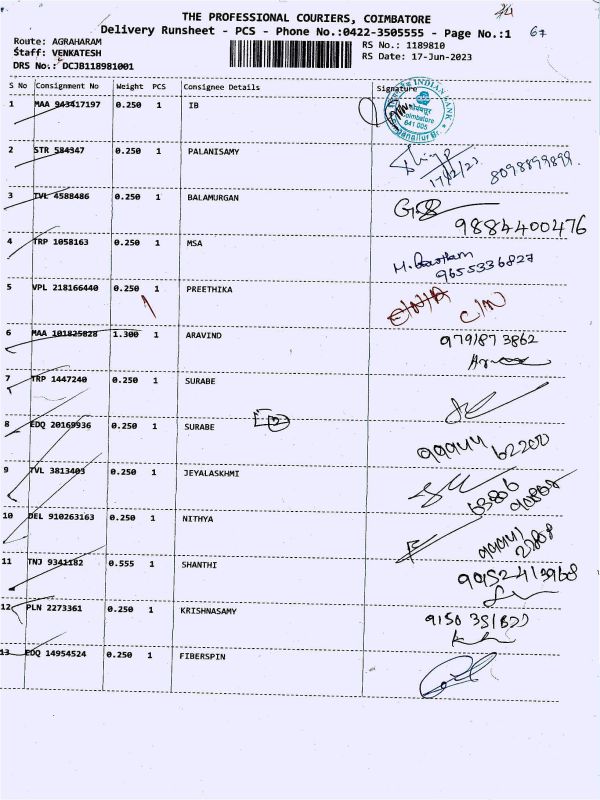 THE PROFESSIONAL COURIERS, COIMBATORE
Delivery Runsheet - PCS - Phone No.:0422-3505555 - Page No.:1 67
Route: AGRAHARAM
Staff: VENKATESH
DRS No.: DCJB118981001
RS No.: 1189810
RS Date: 17-Jun-2023
S No Consignment No Weight PCS Consignee Details Signature
1 MAA 943417197 0.250 1 IB
INDIAN BANK
कोयंबत्तूर
Coimbatore
641 005
2 STR 584347 0.250 1 PALANISAMY
8098899899
3 TVL 4588486 0.250 1 BALAMURGAN
9884400476
4 TRP 1058163 0.250 1 MSA
9655336827
5 VPL 218166440 0.250 1 PREETHIKA
C/N
6 MAA 101825828 1.300 1 ARAVIND
9791873862
7 TRP 1447240 0.250 1 SURABE
8 EDQ 20169936 0.250 1 SURABE
99944 62200
9 TVL 3813403 0.250 1 JEYALASKHMI
63806
10 DEL 910263163 0.250 1 NITHYA
11 TNJ 9341182 0.555 1 SHANTHI
12 PLN 2273361 0.250 1 KRISHNASAMY
13 EDQ 14954524 0.250 1 FIBERSPIN